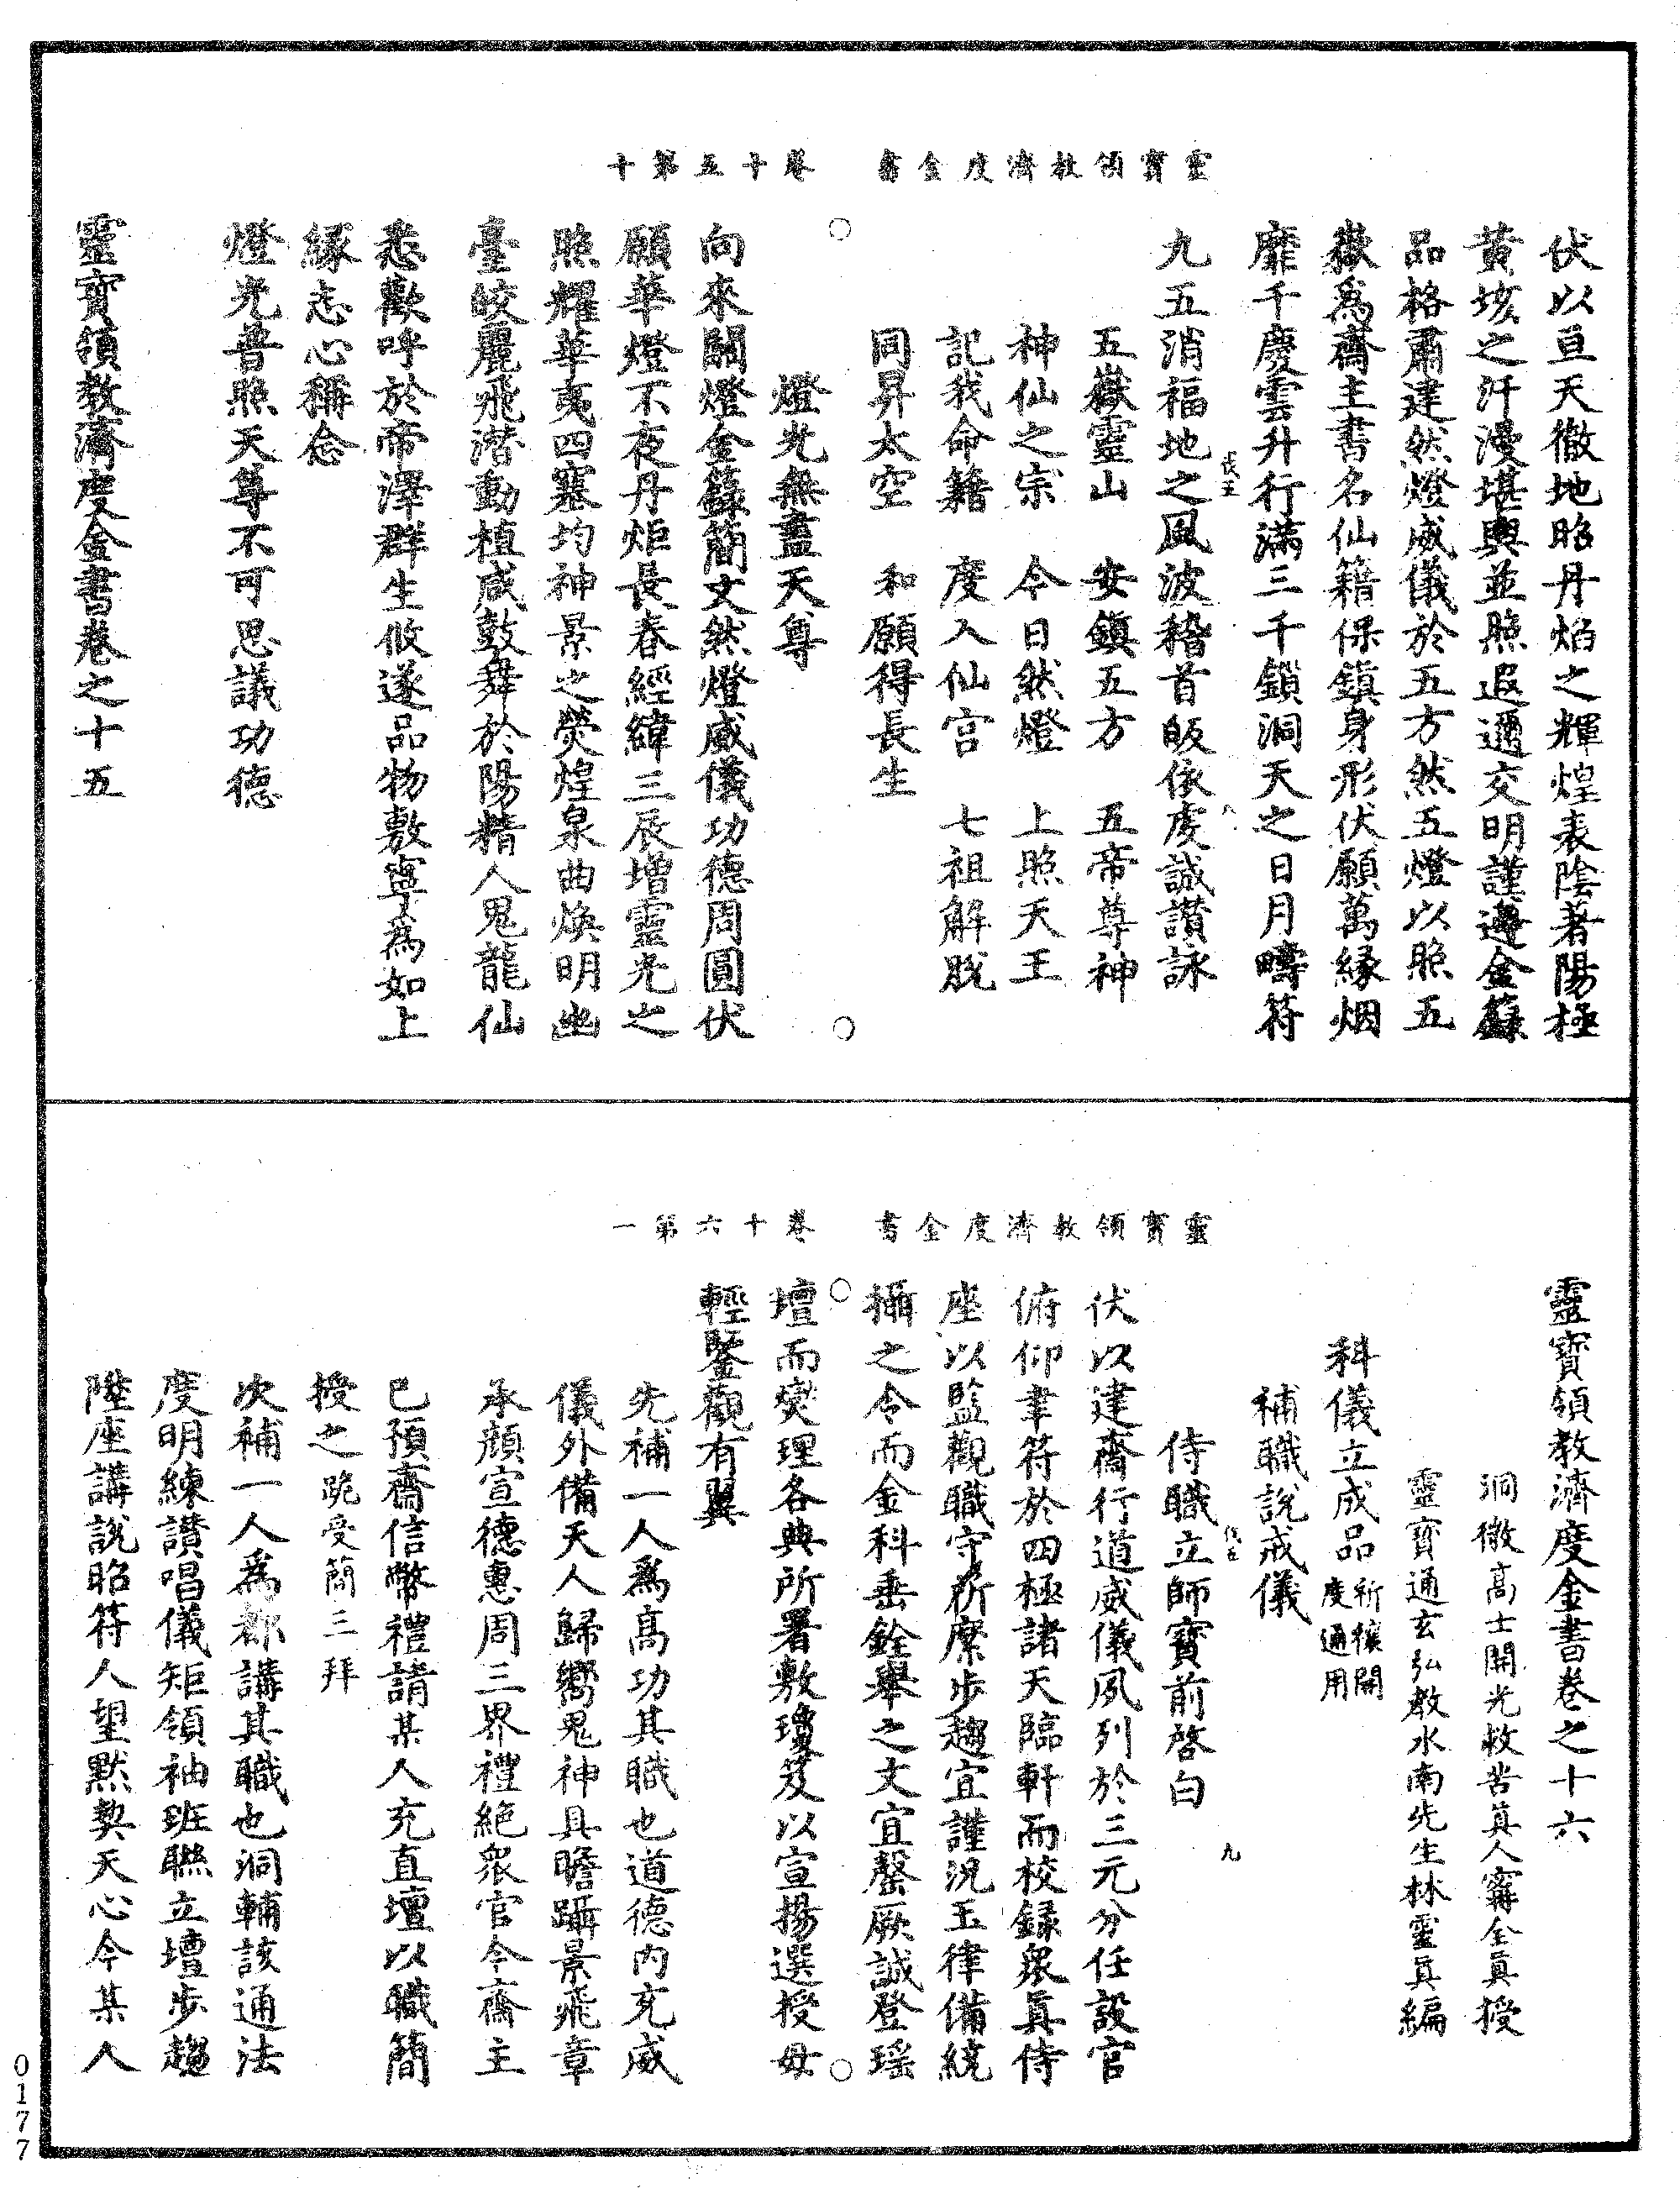 靈寶領教濟度金書　卷十五第十
伏以亘天徹地昭丹焰之輝煌表陰著陽極
黃垓之汗漫堪輿並照遐邇交明謹遵金籙
品格肅建然燈威儀於五方然五燈以照五
嶽爲齋主書名仙籍保鎮身形伏願萬緣烟
靡千慶雲升行滿三千鎖洞天之日月疇符
九五消福地之風波稽首皈依虔誠讚詠
五嶽靈山　安鎮五方　五帝尊神
神仙之宗　今日然燈　上照天王
記我命籍　度入仙宮　七祖解脫
同昇太空　和願得長生
燈光無盡天尊
向來關燈金籙簡文然燈威儀功德周圓伏
願華燈不夜丹炬長春經緯三辰增靈光之
照耀華夷四塞均神景之熒煌泉曲煥明幽
臺皎麗飛潛動植咸鼓舞於陽精人鬼龍仙
悉歡呼於帝澤群生攸遂品物敷寧爲如上
緣志心稱念
燈光普照天尊不可思議功德
靈寶領教濟度金書卷之十五
靈寶領教濟度金書　卷十六第一
靈寶領教濟度金書卷之十六
洞微高士開光救苦眞人甯全眞授
靈寶通玄弘教水南先生林靈眞編
科儀立成品祈禳開度通用
補職說戒儀
侍職立師寶前啓白
九
伏以建齋行道威儀夙列於三元分任設官
俯仰聿符於四極諸天臨軒而校録衆眞侍
座以監觀職守所縻步趨宜謹況玉律備統
攝之令而金科垂銓舉之文宜罄厥誠登瑶
壇而燮理各典所署敷瓊笈以宣揚選授毋
輕鑒觀有翼
先補一人爲高功其職也道德内充威
儀外備天人歸嚮鬼神具瞻躡景飛章
承顔宣德惠周三界禮絶衆官今齋主
已預齋信幣禮請某人充直壇以職簡
授之跪受簡三拜
次補一人爲都講其職也洞輔該通法
度明練讚唱儀矩領袖班聯立壇步趨
陞座講說昭符人望默契天心今某人
0177